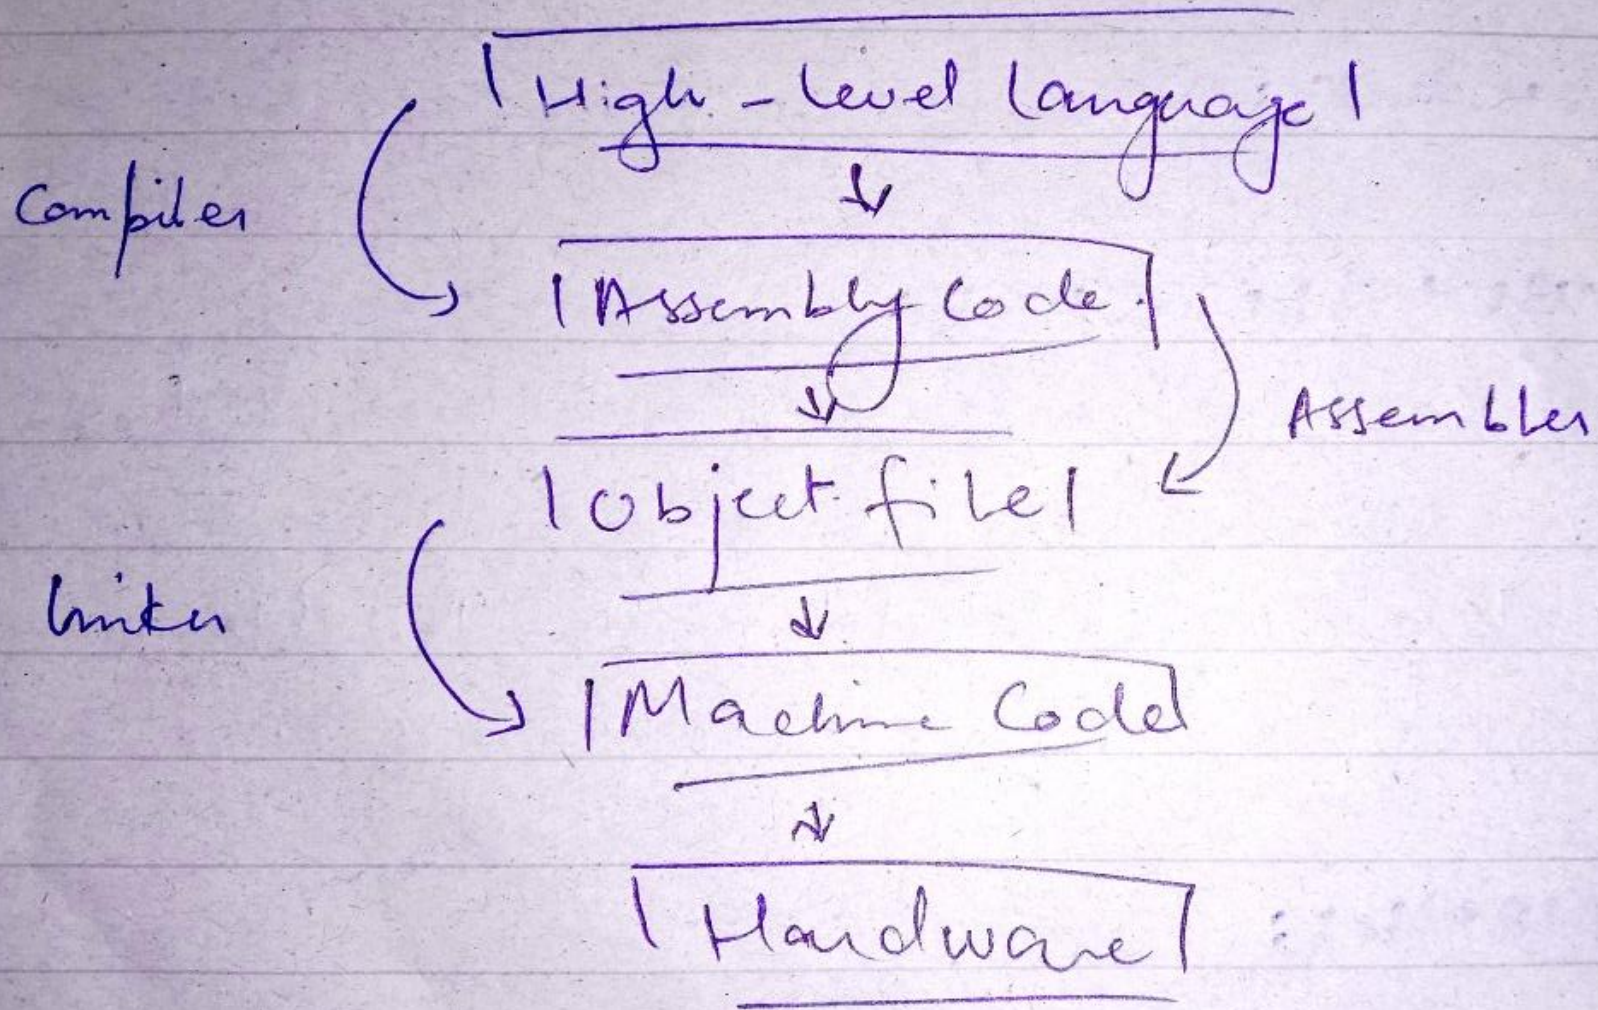 High-level language
Compiler
Assembly Code
Assembler
Object file
Linker
Machine Code
Hardware